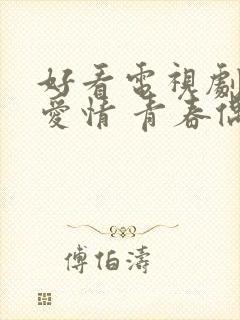 好看電視劇
愛情 青春偶
傅伯濤